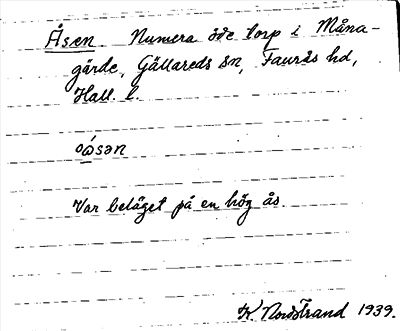 Åsen. Numera öde torp i Måna-
gärde, Gällareds sn, Faurås hd,
Hall. l.
ọ́sən
Var beläget på en hög ås.
K. Nordstrand 1939.